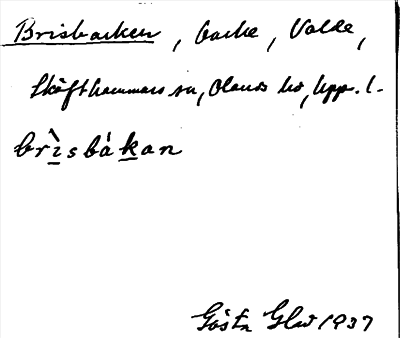 Brisbacken, backe, Valda,
Skäfthammars sn, Olands hd, Uppl.
brìsbákan
Gösta Glw 1937